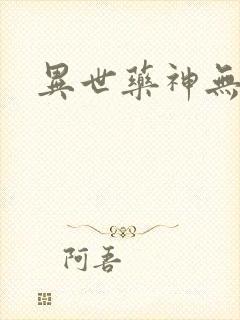 異世藥神無
阿吾